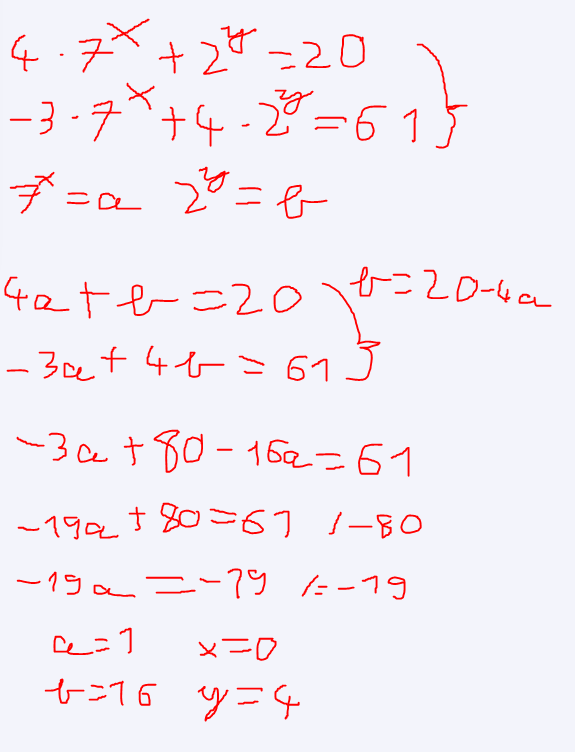 4 · 7^x + 2^y = 20
-3 · 7^x + 4 · 2^y = 61 }
7^x = a 2^y = b
4a + b = 20 b = 20-4a
-3a + 4b = 61 }
-3a + 80 - 16a = 61
-19a + 80 = 61 /-80
-19a = -19 /:-19
a=1 x=0
b=16 y=4